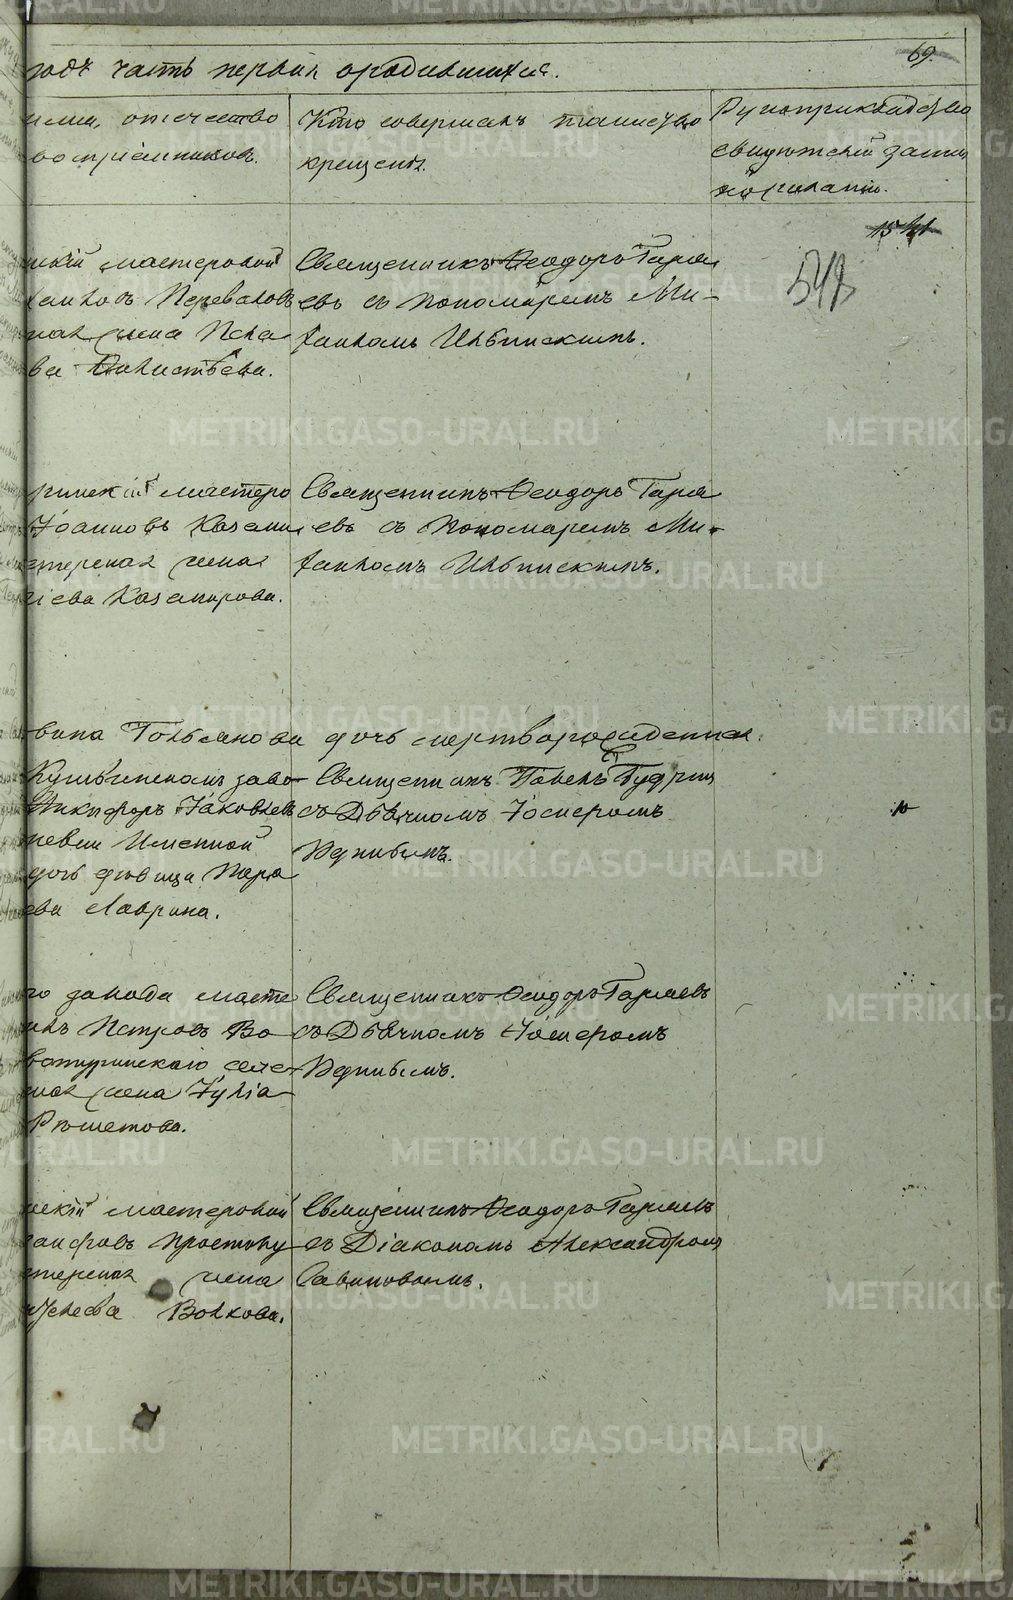 69.
годъ часть первая о родившихся.
имя, отчество
воспріемниковъ.
Кто совершалъ таинство
крещенія.
Рукоприкладство
свидѣтелей записи
по желанію.
1541
548
скій мастеровой
Перевалов
ная жена Пела
ва
Священникъ Ѳеодоръ Гаряе
евъ съ пономаремъ Ми-
хаиломъ Ильинскимъ.
ринскій мастеро
Іоанновъ Казами
стерская жена
гіева Казамирова.
Священникъ Ѳеодоръ Гаря
евъ съ пономаремъ Ми-
хаиломъ Ильинскимъ.
вина Гольянова дочь мертворожденная.
Кушвинскомъ заво-
Никифоръ Іаковлев
невли Именной
дочь дѣвица Пара
ева Лаврина.
Священникъ Павелъ
съ Дьячкомъ Іосифомъ
Удинцевымъ.
го завода масте
инъ Петровъ Во
вотуринскаго селе-
ная жена Іулія
Рѣшетова.
Священникъ Ѳеодоръ Гаряевъ
съ Дьячкомъ Іосифомъ
скій мастеровой
Простолу
стерская жена
Волкова.
Священникъ Ѳеодоръ Гаряевъ
съ Діакономъ Александромъ
Савиновымъ.
METRIKI.GASO-URAL.RU